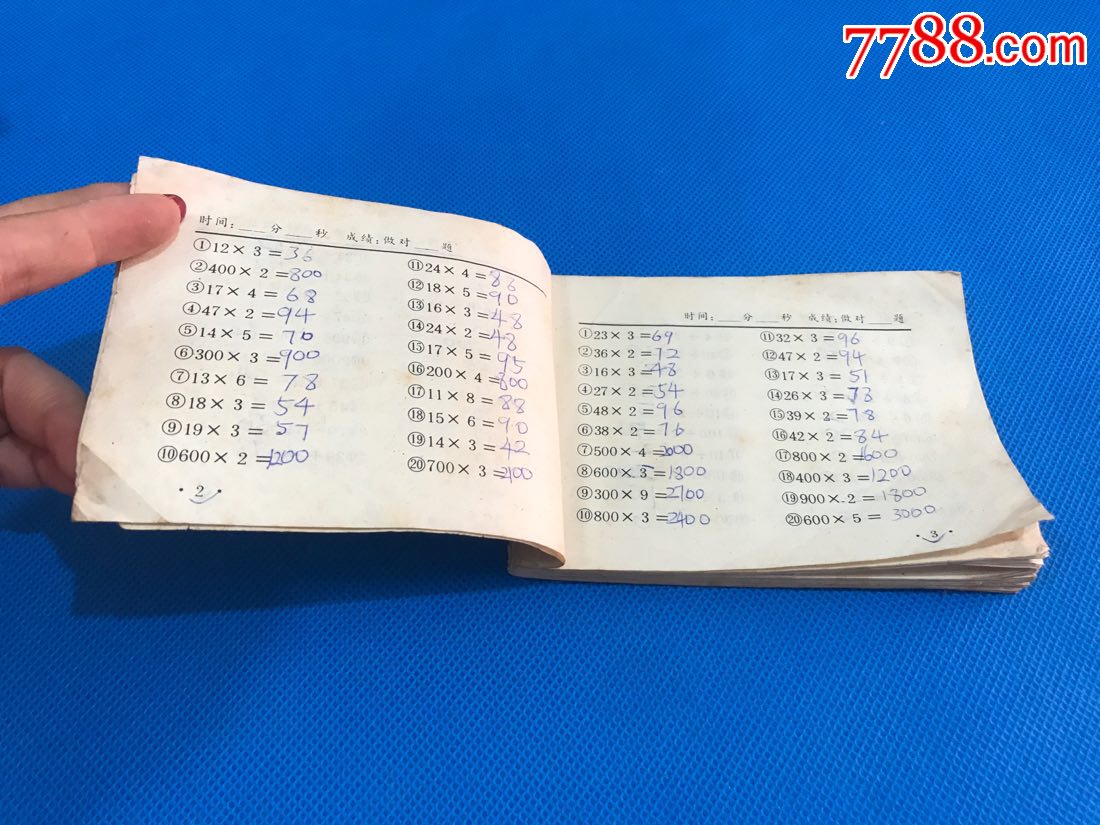 7788.com
时间：___分___秒 成绩：做对___题
①12×3=36
②400×2=800
③17×4=68
④47×2=94
⑤14×5=70
⑥300×3=900
⑦13×6=78
⑧18×3=54
⑨19×3=57
⑩600×2=1200
⑪24×4=86
⑫18×5=90
⑬16×3=48
⑭24×2=48
⑮17×5=95
⑯200×4=800
⑰11×8=88
⑱15×6=90
⑲14×3=42
⑳700×3=2100
·2·
时间：___分___秒 成绩：做对___题
①23×3=69
②36×2=72
③16×3=48
④27×2=54
⑤48×2=96
⑥38×2=76
⑦500×4=2000
⑧600×3=1800
⑨300×9=2700
⑩800×3=2400
⑪32×3=96
⑫47×2=94
⑬17×3=51
⑭26×3=78
⑮39×2=78
⑯42×2=84
⑰800×2=1600
⑱400×3=1200
⑲900×2=1800
⑳600×5=3000
·3·